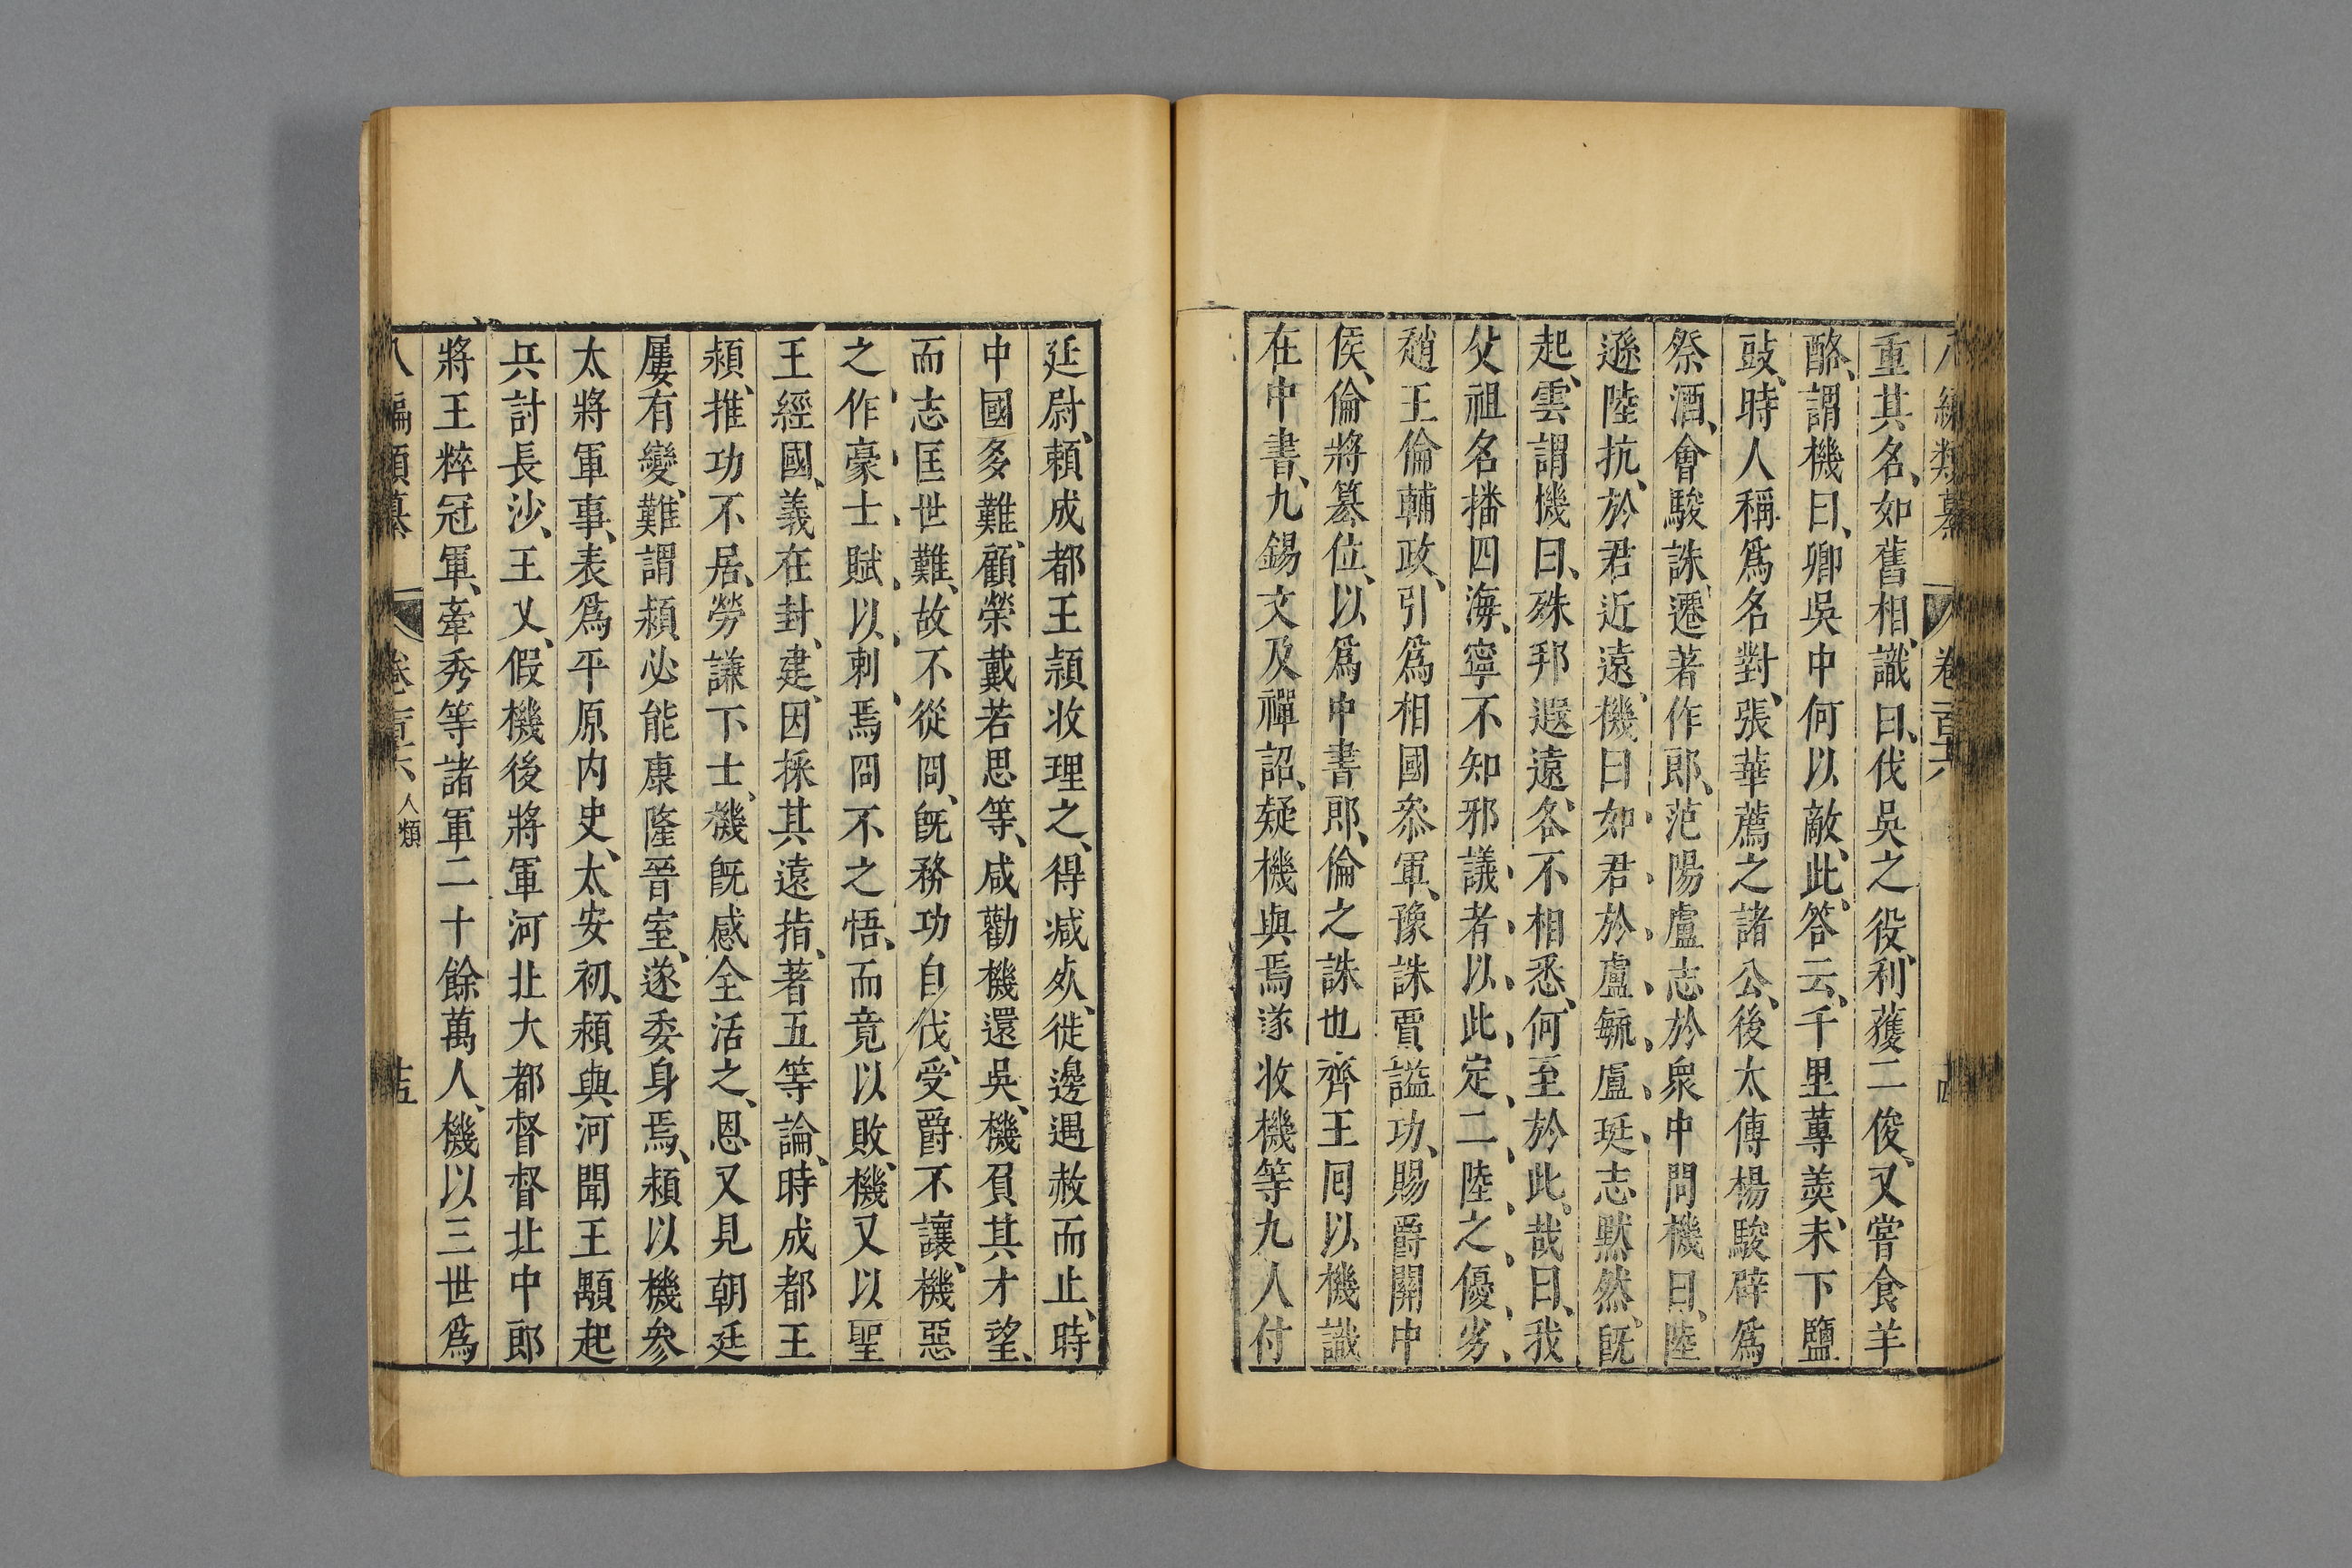 重其名、如舊相識、曰、伐吳之役、利獲二俊、又嘗食羊
酪、謂機曰、卿吳中何以敵此、答云、千里蓴羹、未下鹽
豉、時人稱爲名對、張華薦之諸公、後太傅楊駿辟爲
祭酒、會駿誅、遷著作郎、范陽盧志於衆中問機曰、陸
遜陸抗、於君近遠、機曰如君於盧毓盧珽志黙然、既
起、雲謂機曰、殊邦遐遠、容不相悉、何至於此哉曰、我
父祖名播四海、寧不知邪議者以此定二陸之優劣、
趙王倫輔政、引爲相國叅軍、豫誅賈謐功、賜爵關中
侯、倫將簒位、以爲中書郎、倫之誅也齊王囘以機識
在中書、九錫文及禪詔、疑機與焉遂收機等九人付
廷尉、頼成都王頴收理之、得减死、徙邊遇赦而止、時
中國多難、顧榮戴若思等、咸勸機還吳、機負其才望、
而志匡世難、故不從冏、既務功自伐、受爵不讓、機惡
之作豪士賦以刺焉冏不之悟、而竟以敗、機又以聖
王經國、義在封建、因採其遠指、著五等論、時成都王
頴、推功不居、勞謙下士、機既感全活之恩又見朝廷
屢有變難、謂頴必能康隆晉室、遂委身焉、頴以機參
太將軍事、表爲平原内史、太安初、頴與河間王顒起
兵討長沙、王乂、假機後將軍河北大都督督北中郎
將王粹冠軍、牽秀等諸軍二十餘萬人、機以三世爲
編類纂 卷一百六 人類 十五